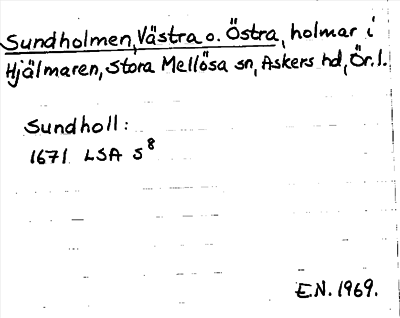 Sundholmen, Västra o. Östra, holmar i
Hjälmaren, Stora Mellösa sn, Askers hd, Ör. l.
Sundholl:
1671 LSA S⁸
E.N. 1969.